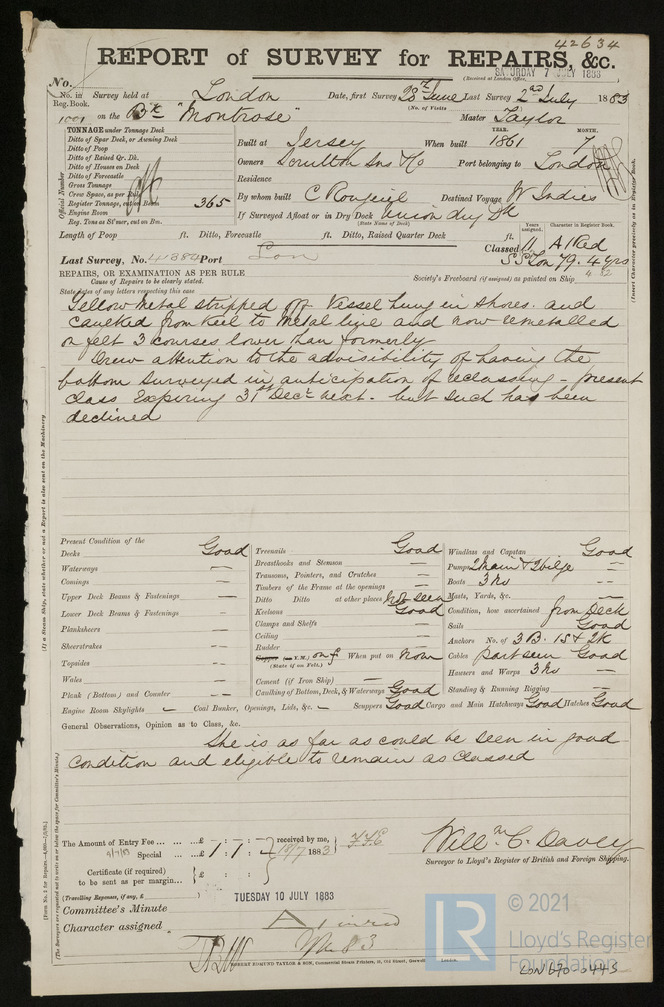 42634
REPORT of SURVEY for REPAIRS, &c.
(Received at London Office,
SATURDAY 7 JULY 1883
No.
No. in Survey held at London Date, first Survey 28th June Last Survey 2nd July 1883
Reg. Book. (No. of Visits)
1001 on the Bk "Montrose" Master Taylor
TONNAGE under Tonnage Deck
Ditto of Spar Deck, or Awning Deck
Ditto of Poop
Ditto of Raised Qr. Dk.
Ditto of Houses on Deck
Ditto of Forecastle
Gross Tonnage
Crew Space, as per Rule
Register Tonnage, cut on Beam 365
Engine Room
Reg. Tons as St'mer, cut on Bm.
Official Number
YEAR. MONTH.
Built at Jersey When built 1861 7
Owners Scrutton Sns & Co Port belonging to London
Residence
By whom built Destined Voyage W Indies
If Surveyed Afloat or in Dry Dock Union dry Dk
(State Name of Dock)
Length of Poop ft. Ditto, Forecastle ft. Ditto, Raised Quarter Deck ft.
Years assigned. Character in Register Book.
Classed 11 A Red
SS Lon 79. 4 yrs
(Insert Character precisely as in Register Book.
Last Survey, No. 41384 Port Lon
REPAIRS, OR EXAMINATION AS PER RULE
Cause of Repairs to be clearly stated.
Society's Freeboard (if assigned) as painted on Ship
State dates of any letters respecting this case
Yellow metal stripped off Vessel hung in Shores. and
caulked from Keel to Metal line and now remetalled
on felt 3 courses lower than formerly
Drew attention to the advisibility of having the
bottom Surveyed in anticipation of reclassing - present
class Expiring 31st Decr next. but such has been
declined
Present Condition of the
Decks Good
Waterways —
Comings —
Upper Deck Beams & Fastenings —
Lower Deck Beams & Fastenings -
Planksheers —
Sheerstrakes —
Topsides —
Wales —
Plank (Bottom) and Counter —
Treenails Good
Breasthooks and Stemson —
Transoms, Pointers, and Crutches —
Timbers of the Frame at the openings —
Ditto Ditto at other places not seen
Keelsons Good
Clamps and Shelfs —
Ceiling —
Rudder —
Copper (or Y.M.) on f When put on now
(State if on Felt.)
Cement (if Iron Ship) —
Caulking of Bottom, Deck, & Waterways Good
Windlass and Capstan Good
Pumps 2 Main & 2 bilge —
Boats 3 No —
Masts, Yards, &c. —
Condition, how ascertained from Deck
Sails Good
Anchors No. of 3 B. 1 S & 2 K
Cables part seen Good
Hawsers and Warps 3 No —
Standing & Running Rigging —
Engine Room Skylights — Coal Bunker, Openings, Lids, &c. — Scuppers Good Cargo and Main Hatchways Good Hatches Good
General Observations, Opinion as to Class, &c.
She is as far as could be seen in good
condition and eligible to remain as classed
The Amount of Entry Fee ... ... ... £ : : received by me,
Special ... ... £ 1 : 1 : 10/7 1883
Certificate (if required)
to be sent as per margin... £ : :
(Travelling Expenses, if any, £ )
Willm C. Davey
Surveyor to Lloyd's Register of British and Foreign Shipping.
TUESDAY 10 JULY 1883
Committee's Minute
Character assigned A 1 in red
ROBERT EDMUND TAYLOR & SON, Commercial Steam Printers, 19, Old Street, Goswell London.
(If a Steam Ship, state whether or not a Report is also sent on the Machinery
© 2021
LR Lloyd's Register
Foundation
LON 670-0443